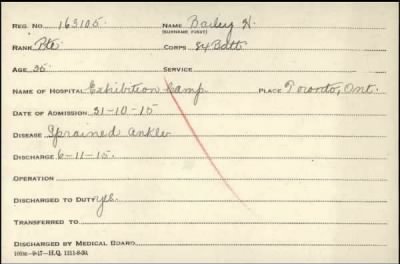 Reg. No. 163105. Name Bailey H.
(Surname First)
Rank Pte Corps 84 Batt
Age 35 Service
Name of Hospital Exhibition Camp Place Toronto, Ont.
Date of Admission 31-10-15
Disease Sprained Ankle
Discharge 6-11-15.
Operation
Discharged to Duty yes.
Transferred to
Discharged by Medical Board